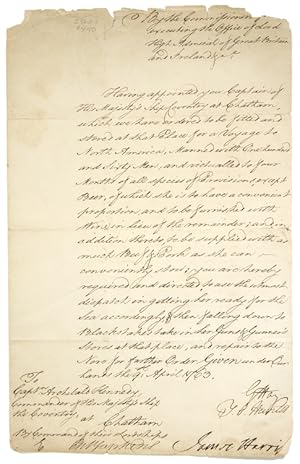 By the Commissioners for
Executing the Office of Lord
High Admiral of Great Britain
and Ireland &ca
Having appointed you Captain of
His Majesty's Ship Coventry at Chatham,
which we have ordered to be fitted and
stored at that Place for a Voyage to
North America, Manned with One hundred
and Sixty Men, and victualled to Four
Months of all species of Provisions, except
Beer, of which she is to have a convenient
proportion, and to be furnished with
Wine in lieu of the remainder; and in
addition thereto, to be supplied with as
much Beef & Pork as she can
conveniently stow; you are hereby
required and directed to use the utmost
dispatch in getting her ready for the
Sea accordingly, & then falling down to
Blackstakes take in her Guns & Gunner's
Stores at that place, and repair to the
Nore for further Order. Given under Our
hands the April 1763.
To
Captn Archibald Kennedy
Commander of His Majesty's Ship
the Coventry, at
Chatham
By Command of their Lordships
James Harris